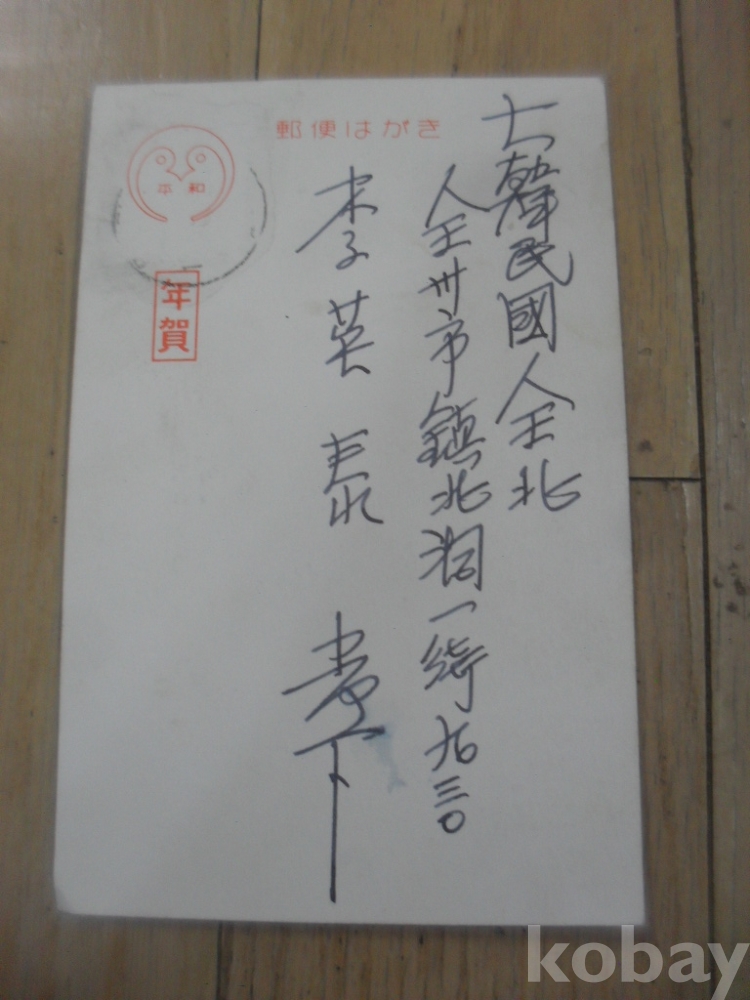 郵便はがき
平和
年賀
大韓民國全北
全州市鎭北洞一街 三〇
李英 貴下
kobay